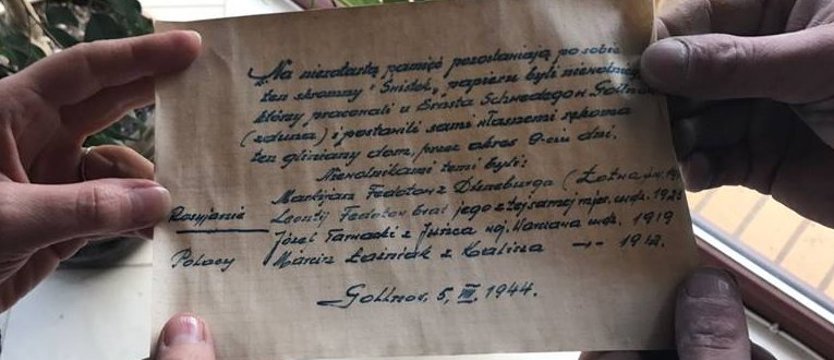 "Na niezatartą pamięć pozostawiają po sobie
ten skromny "Świstek" papieru byli niewolnicy
którzy pracowali u Ernsta Schwedagow Gollnow
(zduna) i postawili sami własnemi rękoma
ten gliniany dom, przez okres 9-ciu dni.
Niewolnikami temi byli:
Markijan Fedotow z Düneburga (Łotwa
Rosyjanie Leontij Fedotow brat jego z tej samej miejsc. urdz.
Józef Tarnacki z Juńca woj. Warszawa urdz. 1919
Polacy Marcin Łaźniak z Kalisza —"— 1912.
Gollnow, 5, III, 1944.